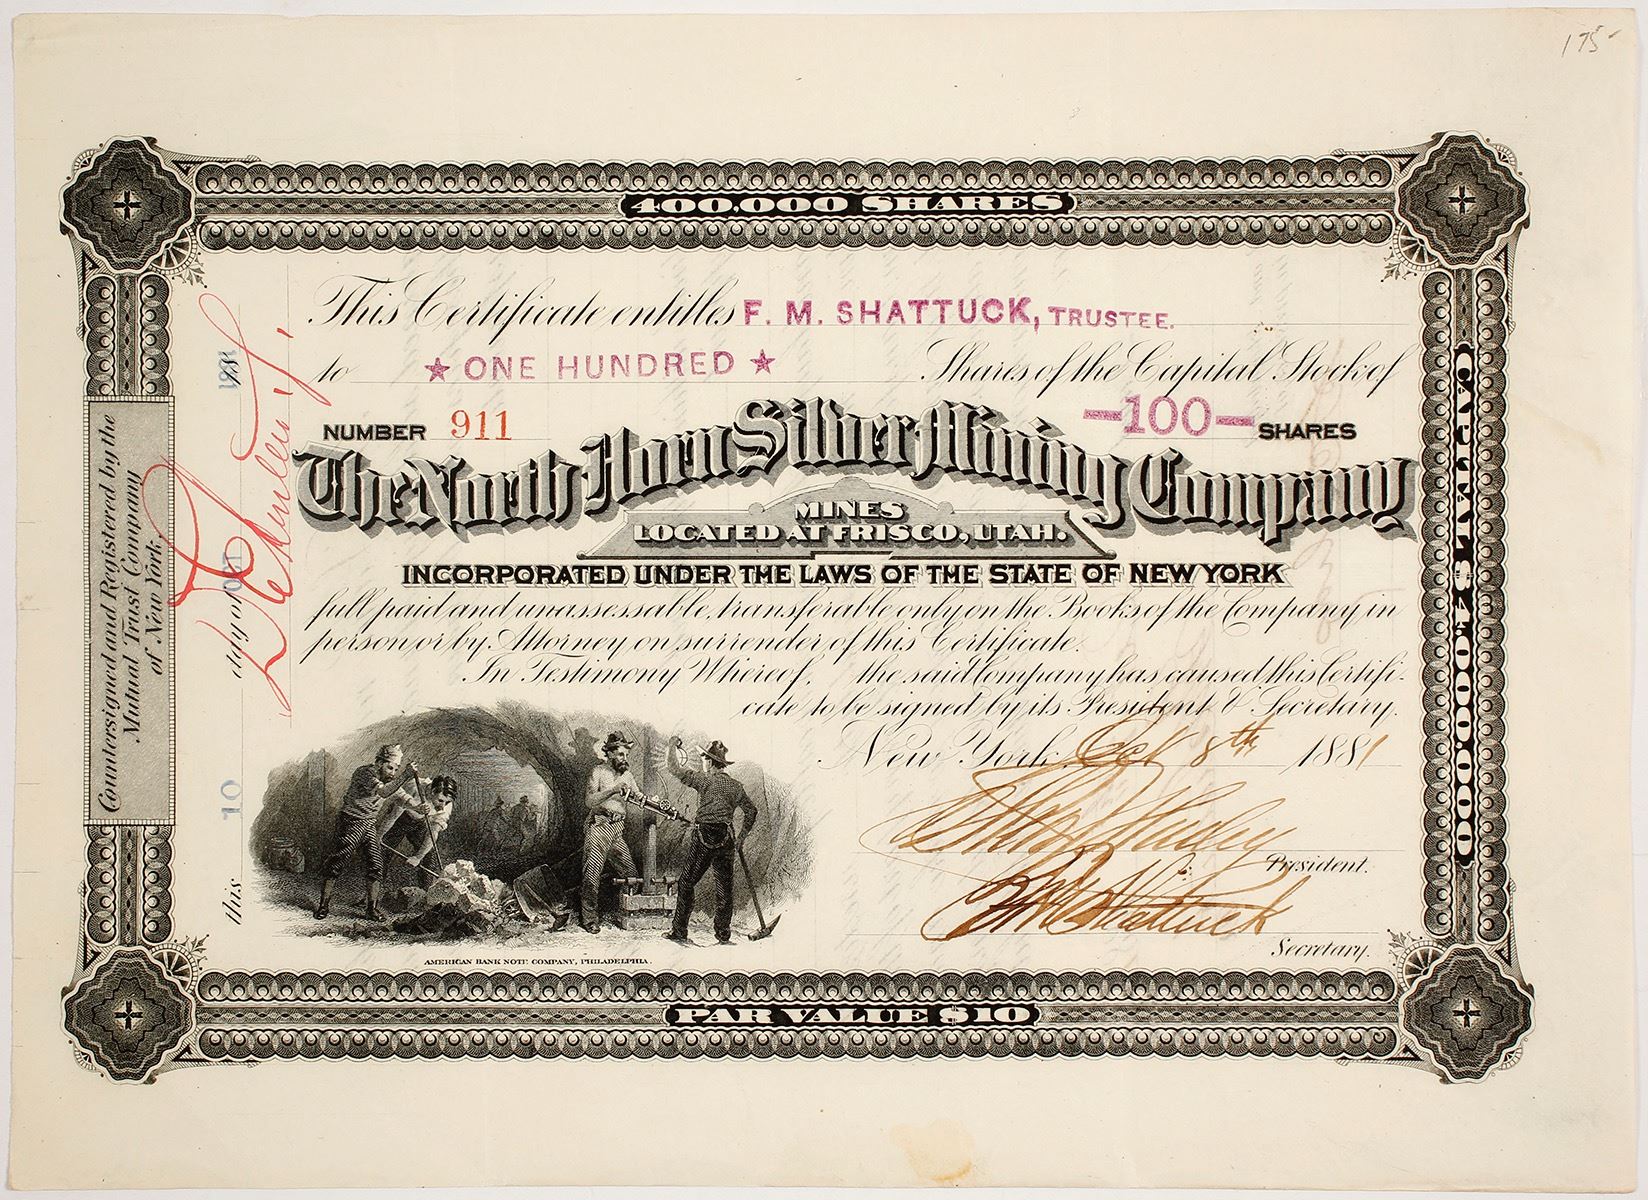 175-
400,000 SHARES
This Certificate entitles F. M. SHATTUCK, TRUSTEE.
to ★ ONE HUNDRED ★ Shares of the Capital Stock of
NUMBER 911 -100- SHARES
The North Horn Silver Mining Company
MINES
LOCATED AT FRISCO, UTAH.
INCORPORATED UNDER THE LAWS OF THE STATE OF NEW YORK
full paid and unassessable, transferable only on the Books of the Company in
person or by Attorney on surrender of this Certificate.
In Testimony Whereof, the said Company has caused this Certifi-
cate to be signed by its President & Secretary.
New York Oct 8th 1881
President.
Shattuck
Secretary.
AMERICAN BANK NOTE COMPANY, PHILADELPHIA.
PAR VALUE $10
CAPITAL $4,000,000
Countersigned and Registered by the
Mutual Trust Company
of New York,
this 10 day of OCT 1881